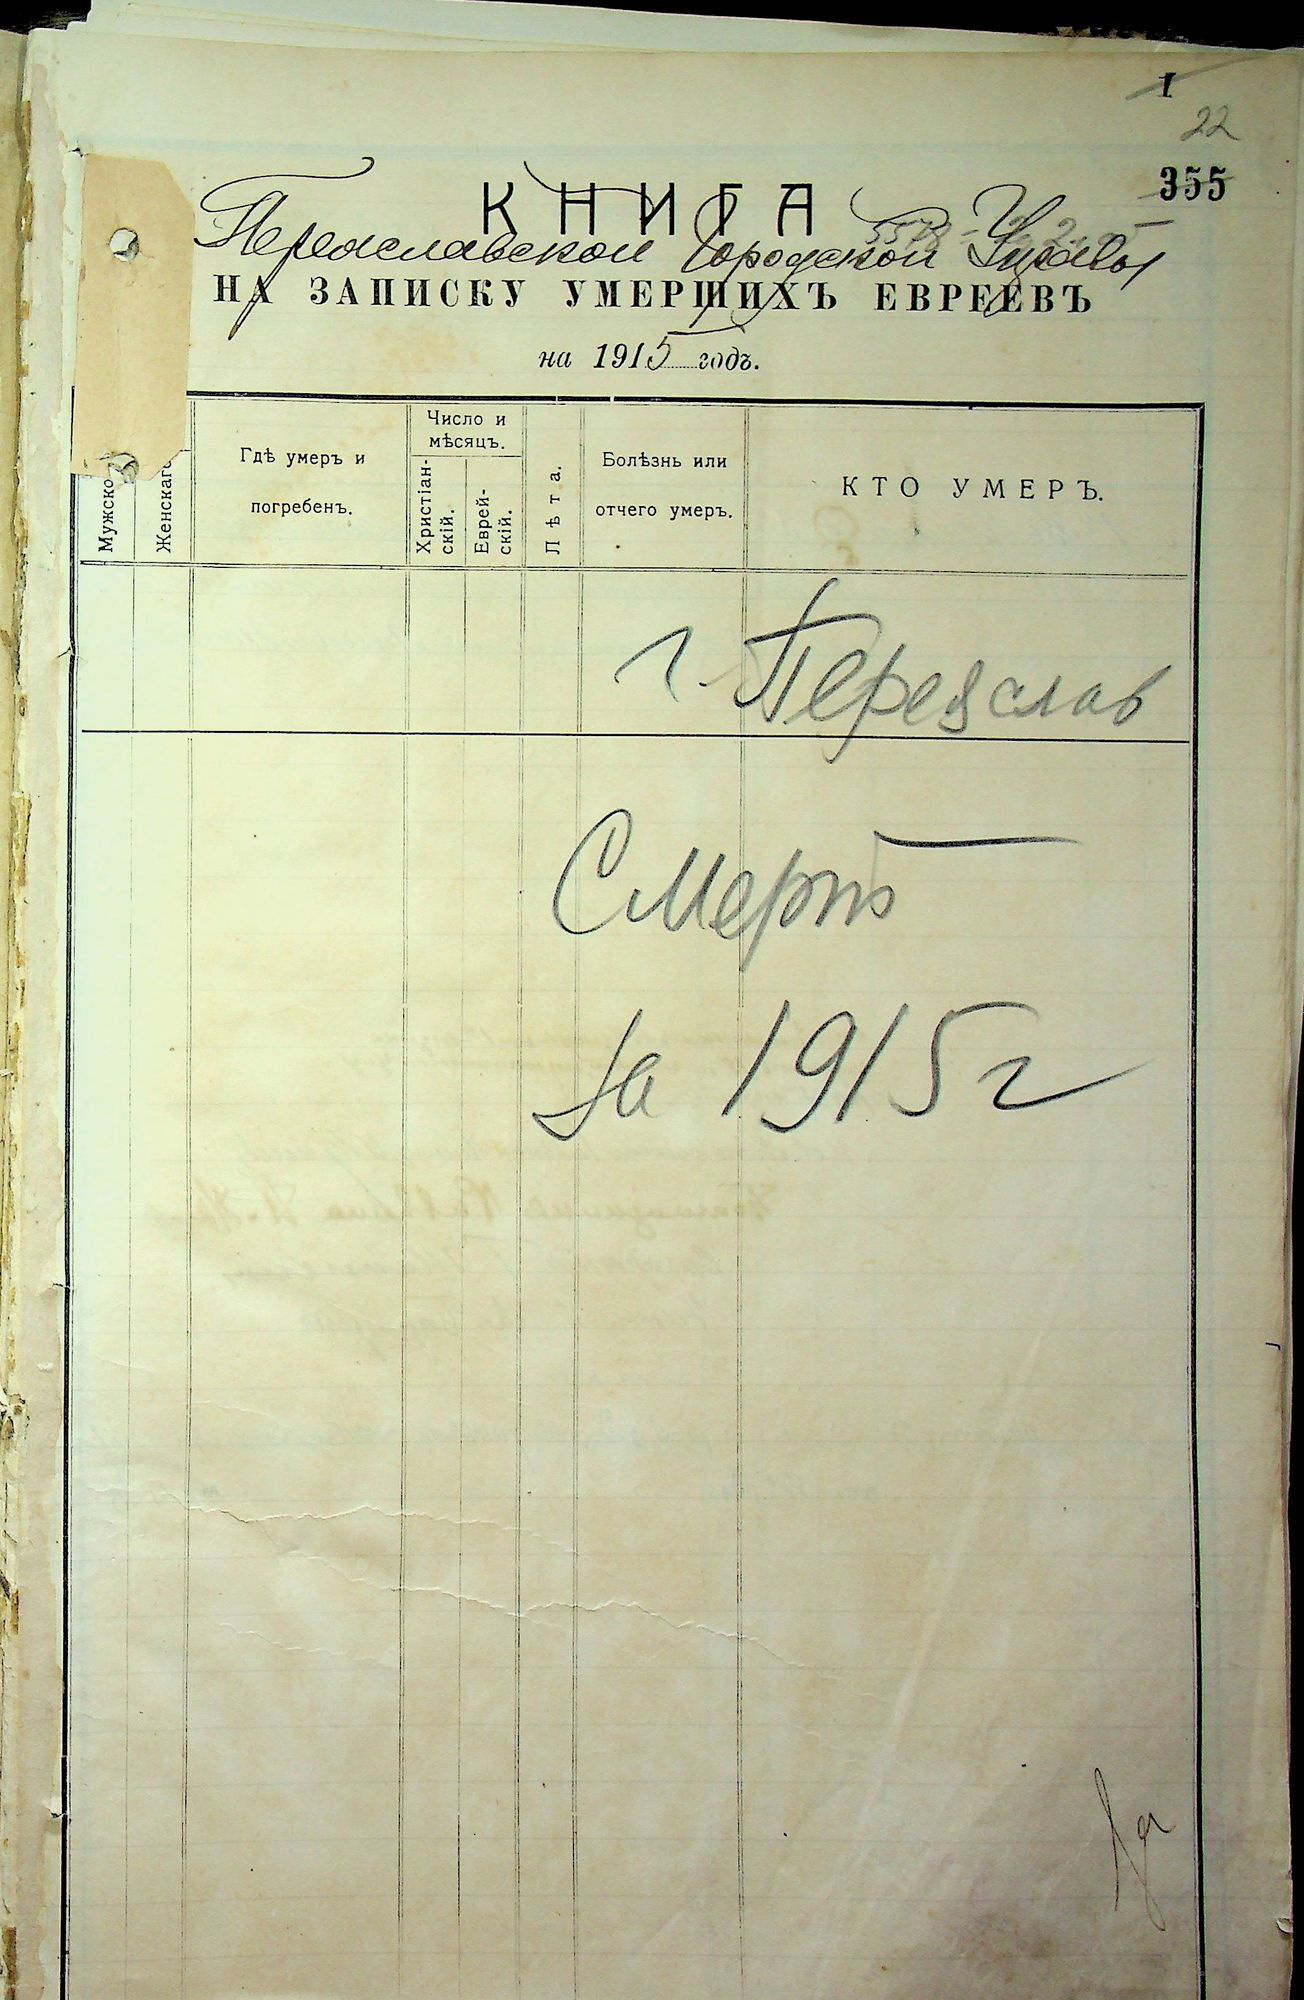 1
22
355
КНИГА
Переяславской Городской Управы
НА ЗАПИСКУ УМЕРШИХЪ ЕВРЕЕВЪ
на 1915 годъ.
Мужско
Женскаго
Гдѣ умеръ и
погребенъ.
Число и
мѣсяцъ.
Христіан-
скій.
Еврей-
скій.
Лѣта.
Болѣзнь или
отчего умеръ.
КТО УМЕРЪ.
г. Переяслав
Смерть
за 1915 г